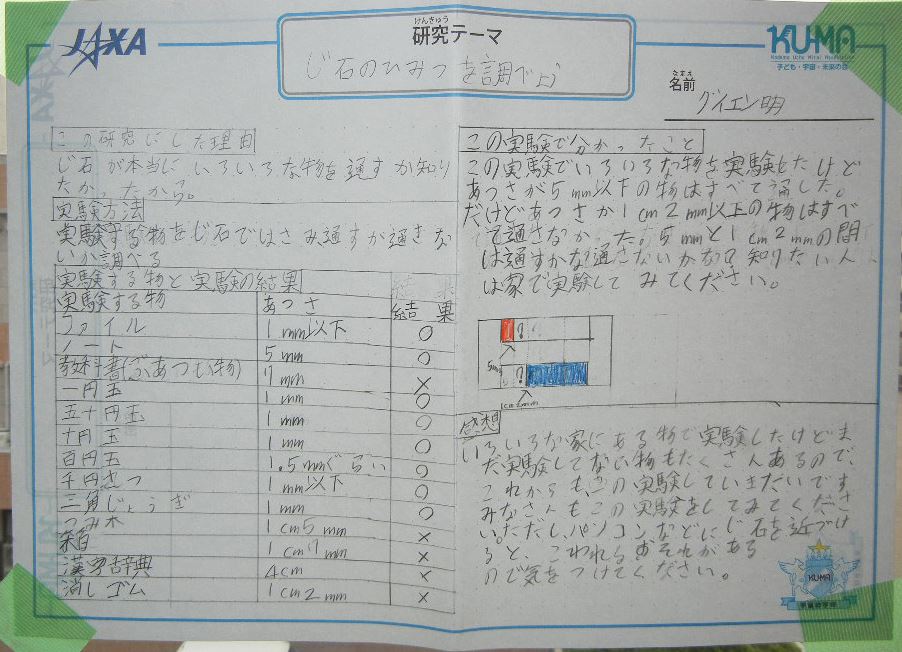 JAXA
けんきゅう
研究テーマ
じ石のひみつを調べよう
KU-MA
子ども・宇宙・未来の会
なまえ
名前
グイエン明
この研究にした理由
じ石が本当にいろいろな物を通すか知り
たかったから。
実験方法
実験する物をじ石ではさみ通すか通さな
いか調べる
実験する物と実験の結果
実験する物 あつさ 結果
ファイル 1mm以下 ○
ノート 5mm ○
教科書(ぶあつい物) 7mm ×
一円玉 1mm ○
五十円玉 1mm ○
十円玉 1mm ○
百円玉 1.5mmぐらい ○
千円さつ 1mm以下 ○
三角じょうぎ 1mm ○
つみ木 1cm5mm ×
1cm7mm ×
漢字辞典 4cm ×
消しゴム 1cm2mm ×
この実験で分かったこと
この実験でいろいろな物を実験したけど
あつさが5mm以下の物はすべて通した。
だけどあつさが1cm2mm以上の物はすべ
て通さなかった。5mmと1cm2mmの間
は通すかな?通さないかな?知りたい人
は家で実験してみてください。
?
5mm
?
1cm2mm
感想
いろいろな家にある物で実験したけどま
だ、実験してない物もたくさんあるので、
これからもこの実験していきたいです
みなさんもこの実験をしてみてくださ
い。ただし、パソコンなどにじ石を近づけ
ると、こわれるおそれがある
ので気をつけてください。
KUMA